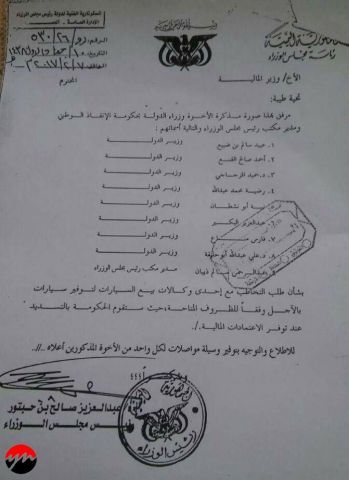 الجمهورية اليمنية
رئاسة مجلس الوزراء
السكرتارية الفنية لدولة رئيس مجلس الوزراء
الإدارة العامة
الرقم
٥٣٠/٢٦
التاريخ
الموافق ٢٠١٧/٢/٧
الأخ/ وزير المالية
المحترم
تحية طيبة:
مرفق بهذا صورة مذكرة الأخوة وزراء الدولة بحكومة الإنقاذ الوطني
ومدير مكتب رئيس مجلس الوزراء والتالية أسمائهم:
١- عبيد سالم بن ضبيع وزير الدولة
٢- أحمد صالح القنع وزير الدولة
٣- د. حميد المزجاجي وزير الدولة
٤- رضية محمد عبدالله وزير الدولة
نبيه أبو نشطان وزير الدولة
عبدالعزيز البكير وزير الدولة
٧- فارس مناع وزير الدولة
٨- د. علي عبدالله أبو حليقة وزير الدولة
عبدالرحمن ذيبان مدير مكتب رئيس مجلس الوزراء
بشأن طلب التخاطب مع إحدى وكالات بيع السيارات لتوفير سيارات
بالآجل وفقاً للظروف المتاحة؛ حيث ستقوم الحكومة بالتسديد
عند توفر الاعتمادات المالية./
للاطلاع والتوجيه بتوفير وسيلة مواصلات لكل واحد من الأخوة المذكورين أعلاه ..//
عبدالعزيز صالح بن حبتور
رئيس مجلس الوزراء
رئيس الوزراء